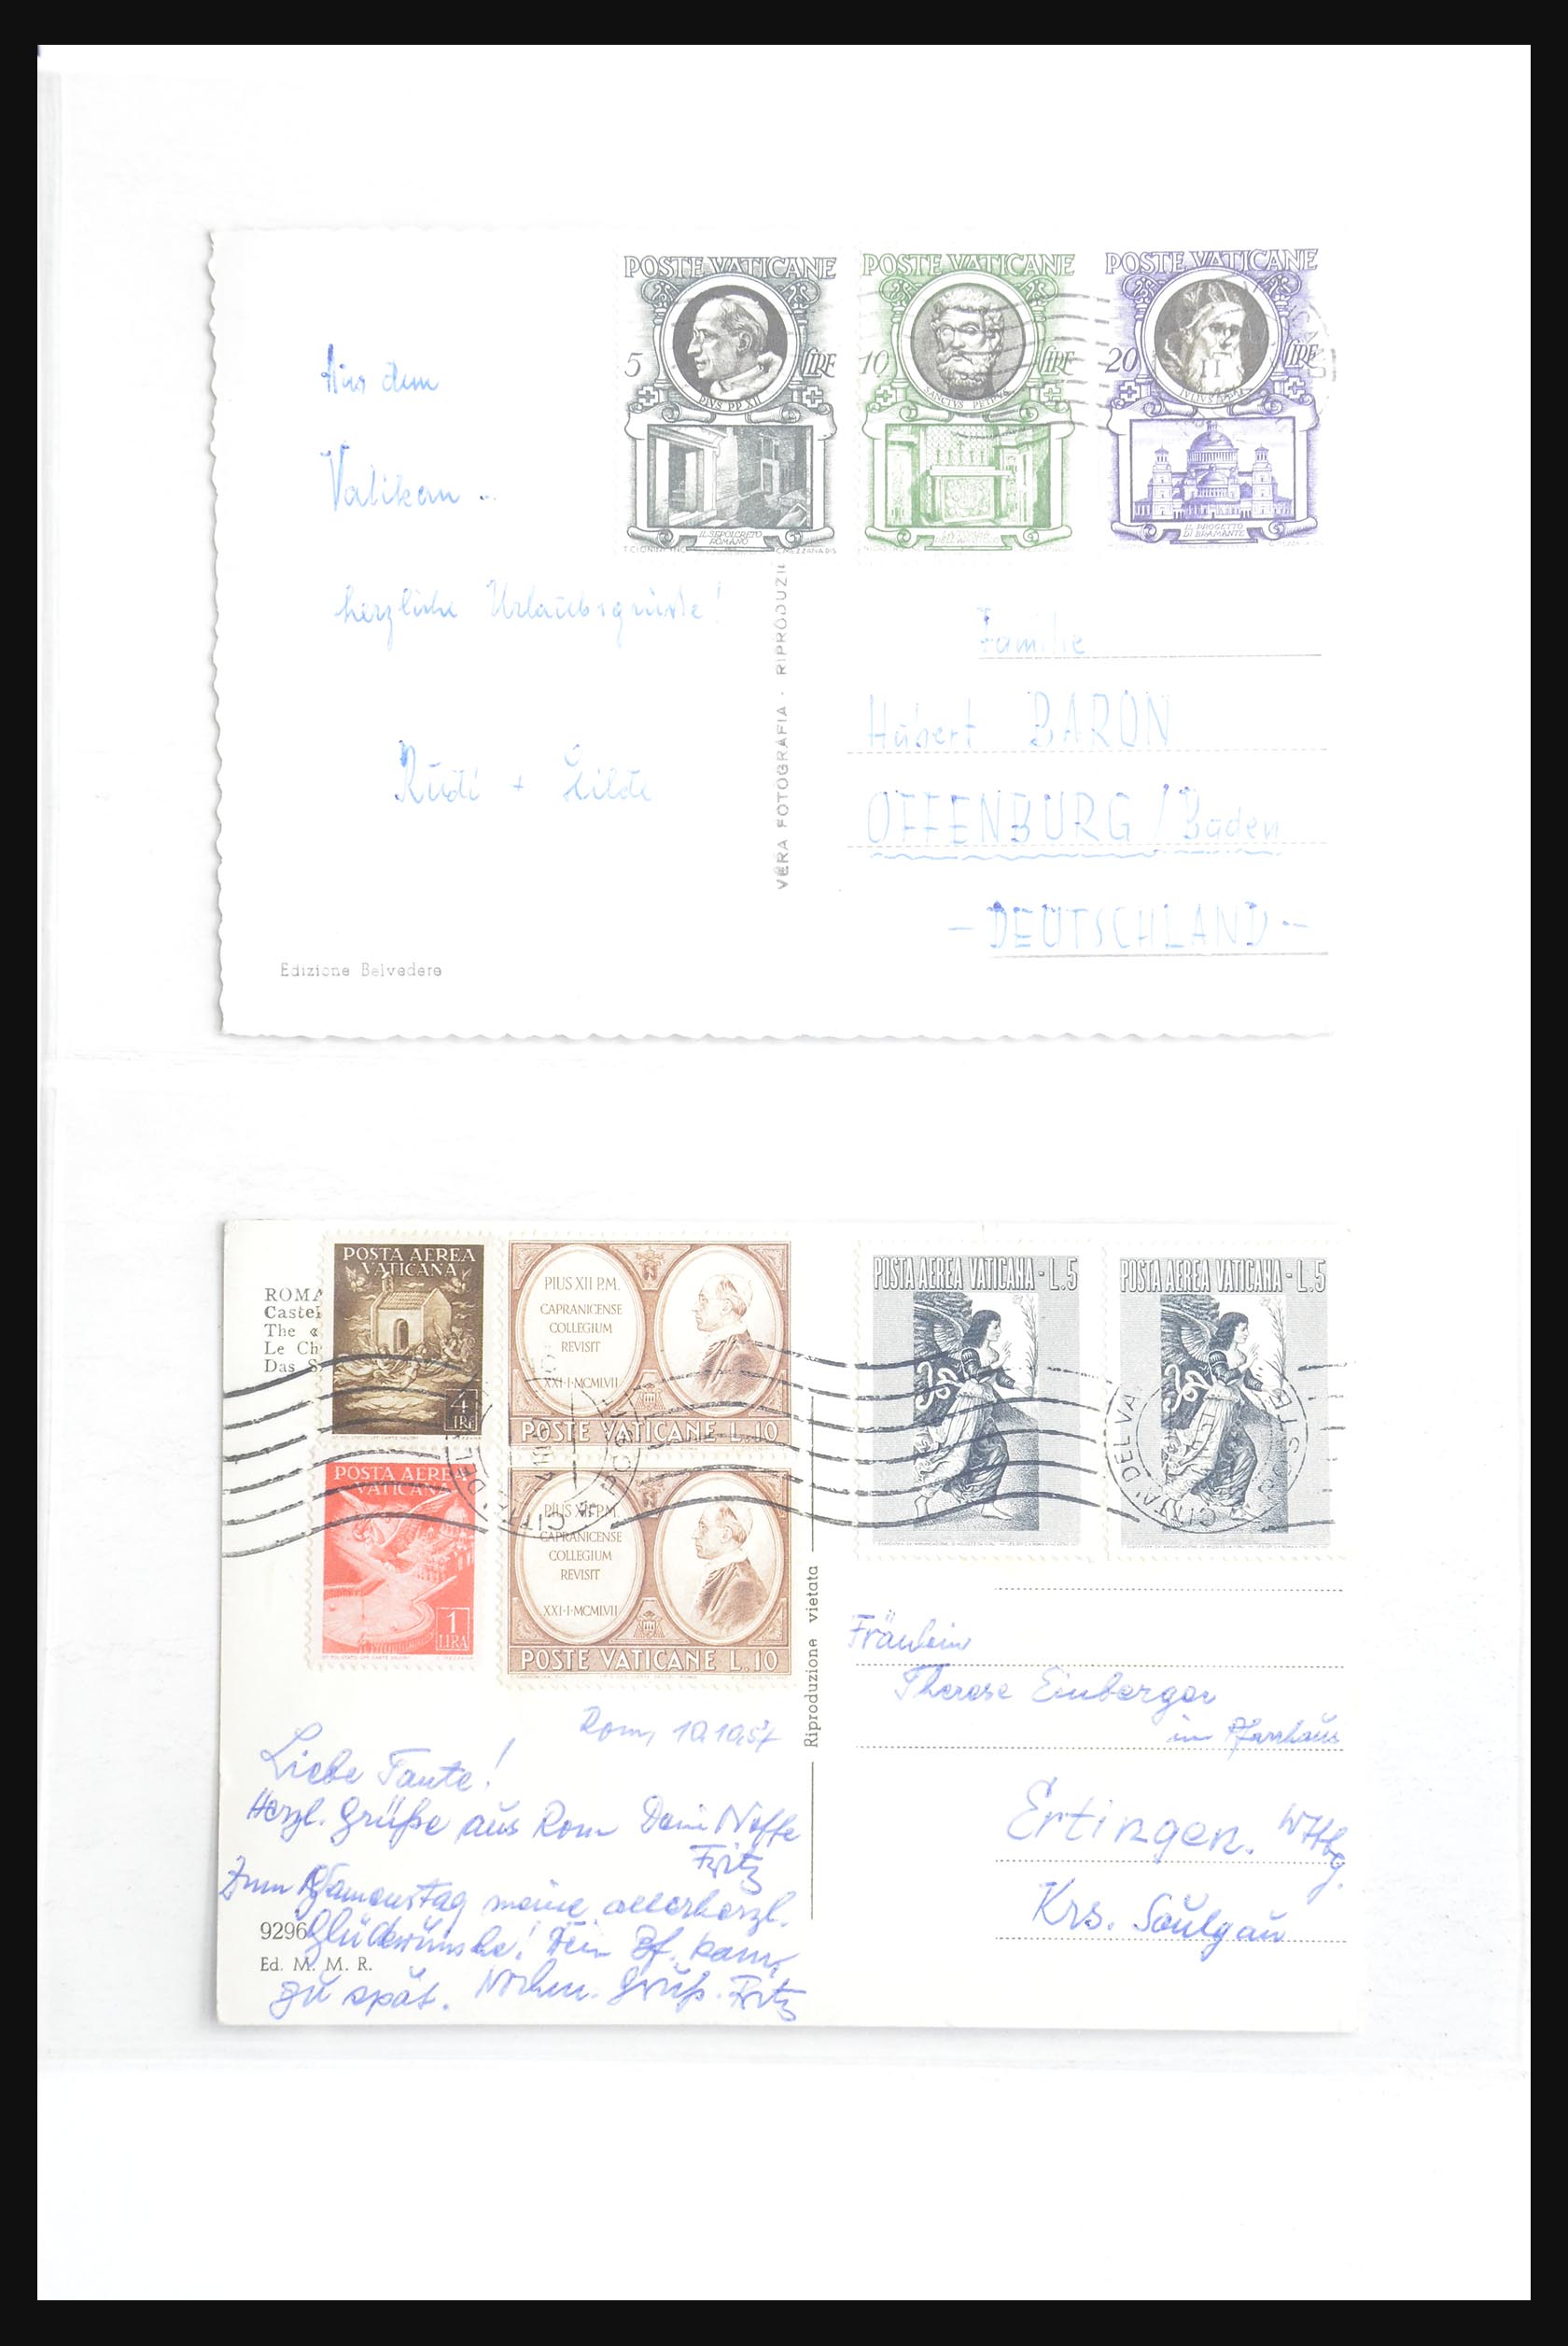 POSTE VATICANE
5 LIRE
PIVS PP XII
IL SEPOLCRETO
ROMANO
POSTE VATICANE
10 LIRE
SANCTVS PETRVS
POSTE VATICANE
20 LIRE
IVLIVS II
IL PROGETTO
DI BRAMANTE
Aus dem
Vatikan ..
herzliche Urlaubsgrüsse!
Rudi + Hilde
VERA FOTOGRAFIA - RIPRODUZI
Familie
Hubert BARON
OFFENBURG / Baden
- DEUTSCHLAND -
Edizione Belvedere
ROMA
Castel
The «
Le Ch
Das S
POSTA AEREA
VATICANA
4
LIRE
POSTA AEREA
VATICANA
1
LIRA
PIUS XII P.M.
CAPRANICENSE
COLLEGIUM
REVISIT
XXI·I·MCMLVII
POSTE VATICANE L.10
PIUS XII P.M.
CAPRANICENSE
COLLEGIUM
REVISIT
XXI·I·MCMLVII
POSTE VATICANE L.10
POSTA AEREA VATICANA - L.5
POSTA AEREA VATICANA - L.5
CITTA' DEL VA
Rom, 10.10.57
Liebe Tante!
Herzl. Grüße aus Rom Dein Neffe
Fritz
Zum Namenstag meine allerherzl.
Glückwünsche! Dein Bf. kam
zu spät. Nochm. Gruß. Fritz
9296
Ed. M. M. R.
Riproduzione vietata
Fräulein
Therese Einberger
im Pfarrhaus
Ertingen. Wttbg.
Krs. Saulgau